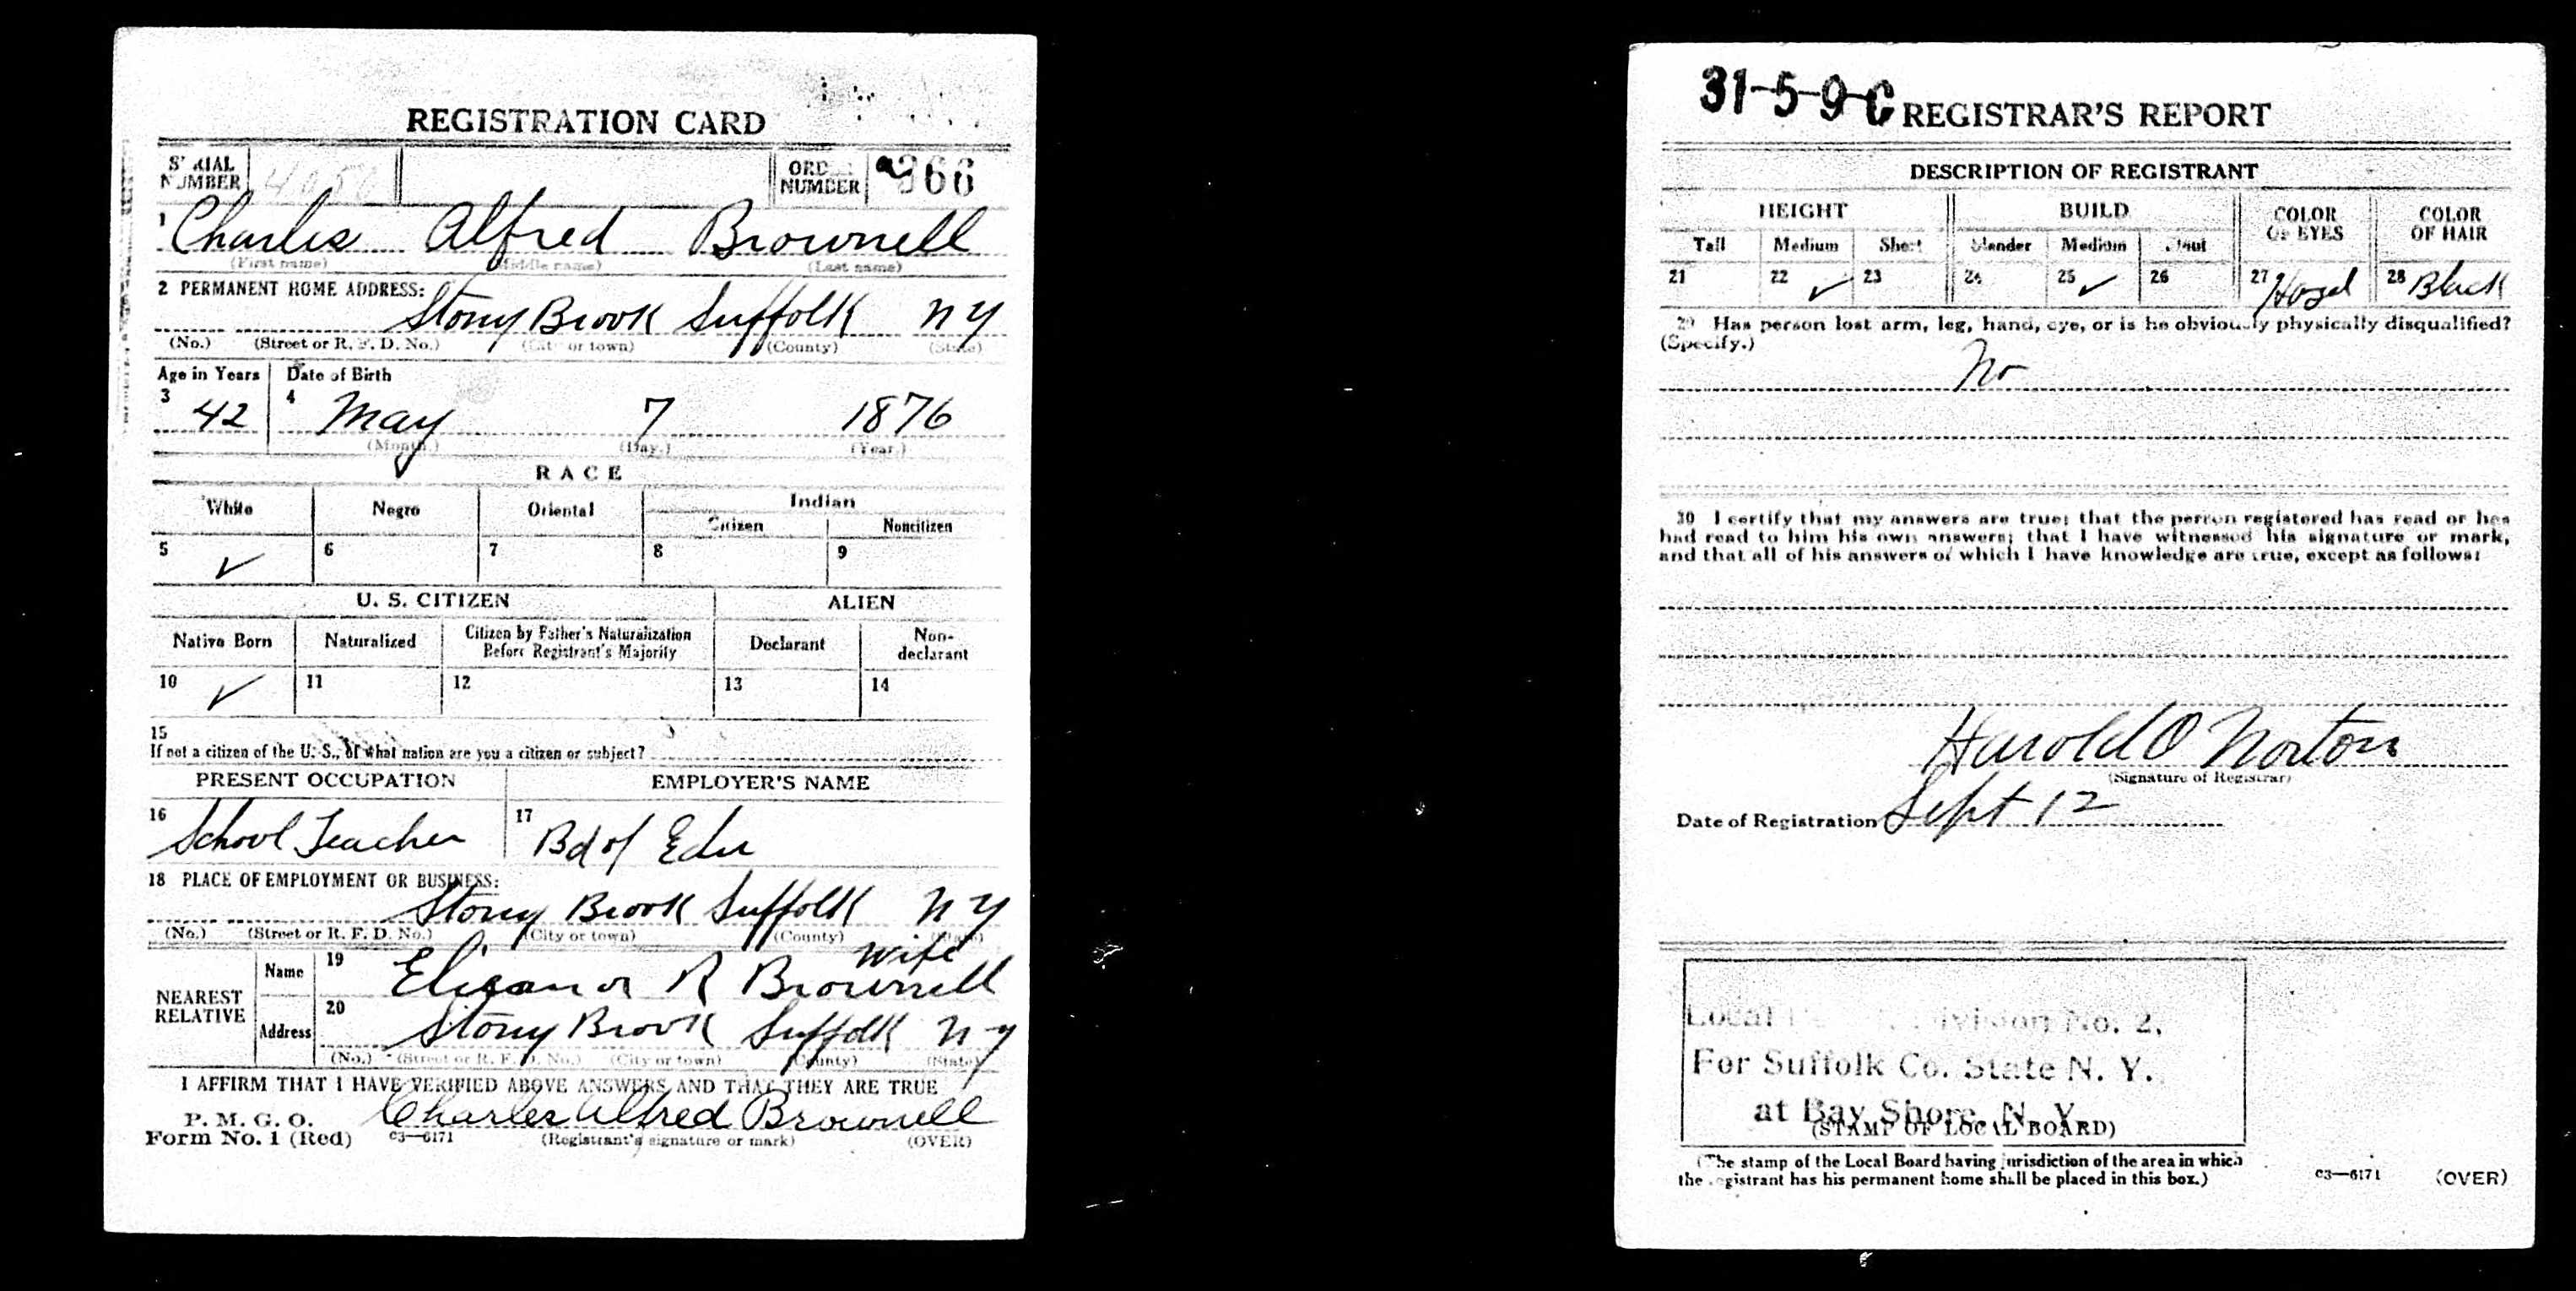 REGISTRATION CARD
SERIAL NUMBER ORDER NUMBER
1 Charles Alfred Brownell
(First name) (Middle name) (Last name)
2 PERMANENT HOME ADDRESS:
Stony Brook Suffolk N Y
(No.) (Street or R. F. D. No.) (City or town) (County) (State)
Age in Years Date of Birth
3 42 4 May 7 1876
(Month.) (Day.) (Year.)
RACE
White Negro Oriental Indian
Citizen Noncitizen
5 ✓ 6 7 8 9
U. S. CITIZEN ALIEN
Native Born Naturalized Citizen by Father's Naturalization Before Registrant's Majority Declarant Non-declarant
10 ✓ 11 12 13 14
15
If not a citizen of the U. S., of what nation are you a citizen or subject?
PRESENT OCCUPATION EMPLOYER'S NAME
16 School Teacher 17 Bd of Edu
18 PLACE OF EMPLOYMENT OR BUSINESS:
Stony Brook Suffolk N Y
(No.) (Street or R. F. D. No.) (City or town) (County) (State)
Wife
NEAREST RELATIVE Name 19 R Brownell
Address 20 Stony Brook Suffolk N Y
(No.) (Street or R. F. D. No.) (City or town) (County) (State)
I AFFIRM THAT I HAVE VERIFIED ABOVE ANSWERS AND THAT THEY ARE TRUE
P. M. G. O.
Form No. 1 (Red) C3—6171 Charles Alfred Brownell
(Registrant's signature or mark) (OVER)
31-5-9-C REGISTRAR'S REPORT
DESCRIPTION OF REGISTRANT
HEIGHT BUILD COLOR OF EYES COLOR OF HAIR
Tall Medium Short Slender Medium Stout
21 22 ✓ 23 24 25 ✓ 26 27 Hazel 28 Black
29 Has person lost arm, leg, hand, eye, or is he obviously physically disqualified?
(Specify.)
No
30 I certify that my answers are true; that the person registered has read or has
had read to him his own answers; that I have witnessed his signature or mark,
and that all of his answers of which I have knowledge are true, except as follows:
Harold O Norton
(Signature of Registrar)
Date of Registration Sept 12
Local Division No. 2,
For Suffolk Co. State N. Y.
at Bay Shore, N. Y.
(STAMP OF LOCAL BOARD)
(The stamp of the Local Board having jurisdiction of the area in which
the registrant has his permanent home shall be placed in this box.)
C3—6171 (OVER)